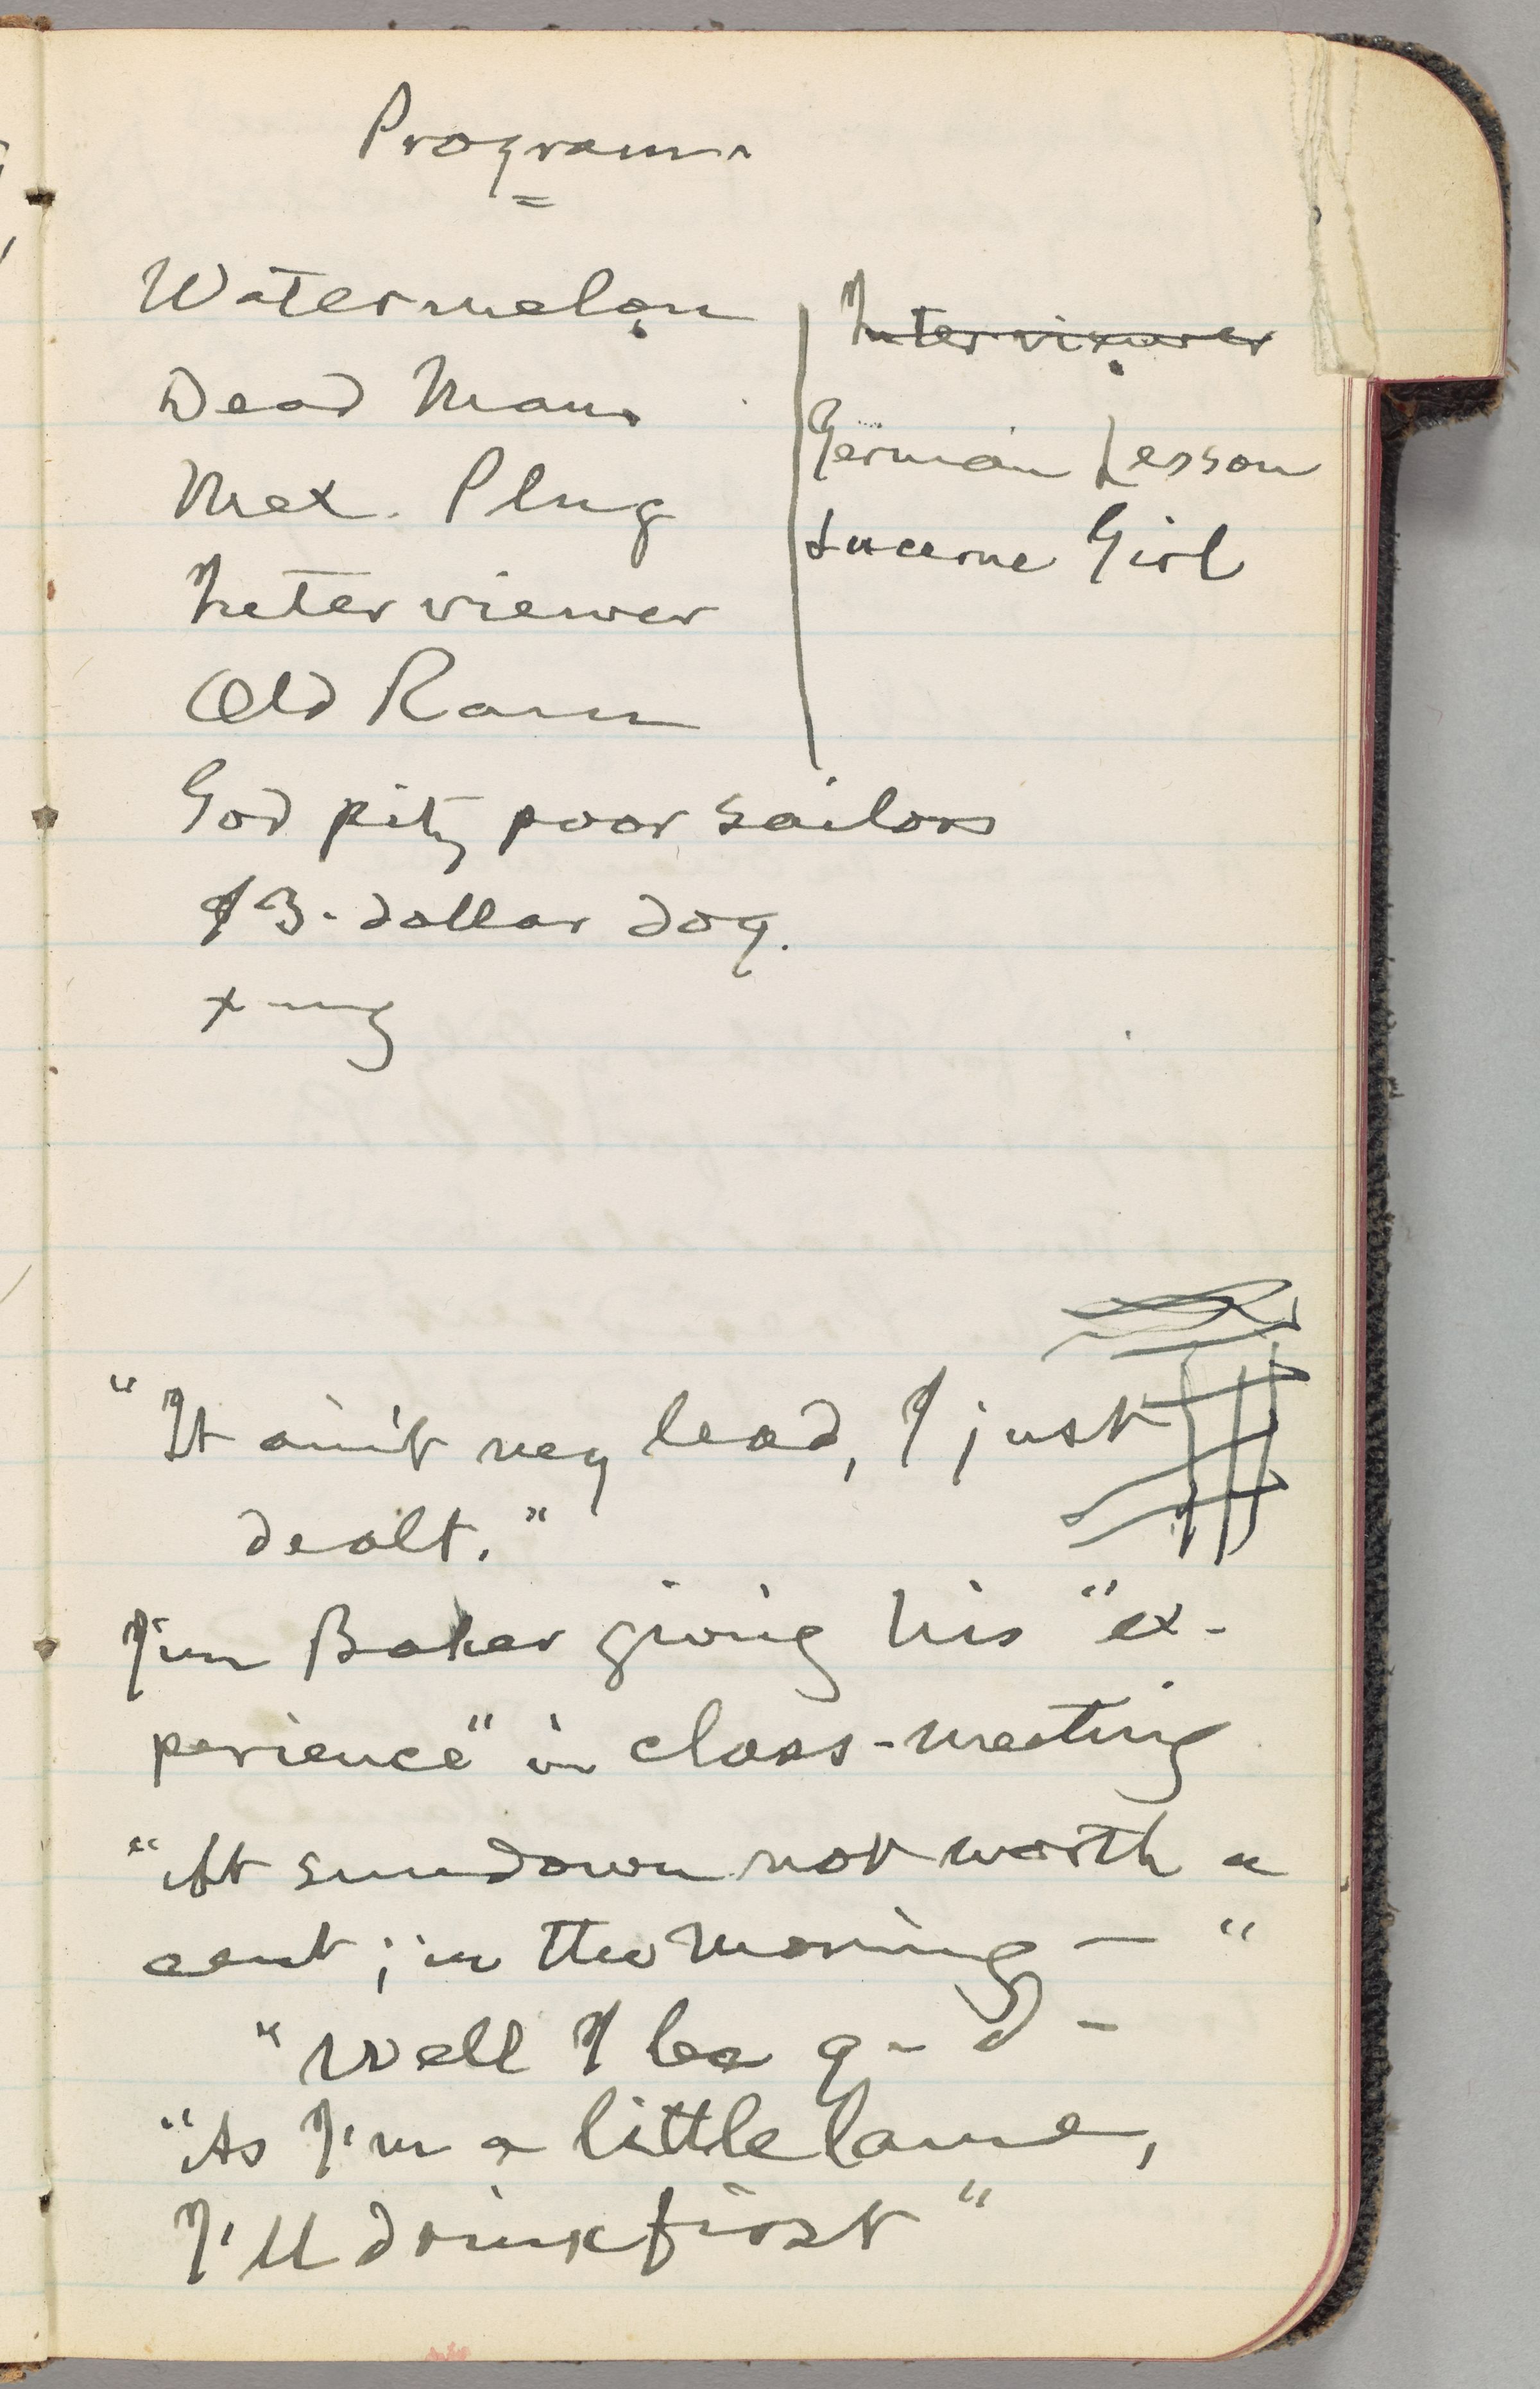 Program.
Watermelon
Dead Man.
Mex. Plug
Interviewer
Old Ram
God pity poor sailors
$3-dollar dog.
x—ing
Interviewer
German Lesson
Lucerne Girl
"It ain't my lead, I just
dealt."
Jim Baker giving his "ex-
perience" in class-meeting
"At sundown not worth a
cent; in the morning — "
"Well I be g—d—
"As I'm a little lame,
I'll drink first"